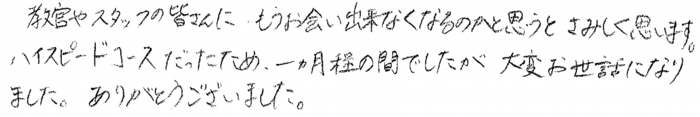 教官やスタッフの皆さんに、もうお会い出来なくなるのかと思うと さみしく思います。
ハイスピードコースだったため、一ヵ月程の間でしたが 大変お世話になり
ました。ありがとうございました。